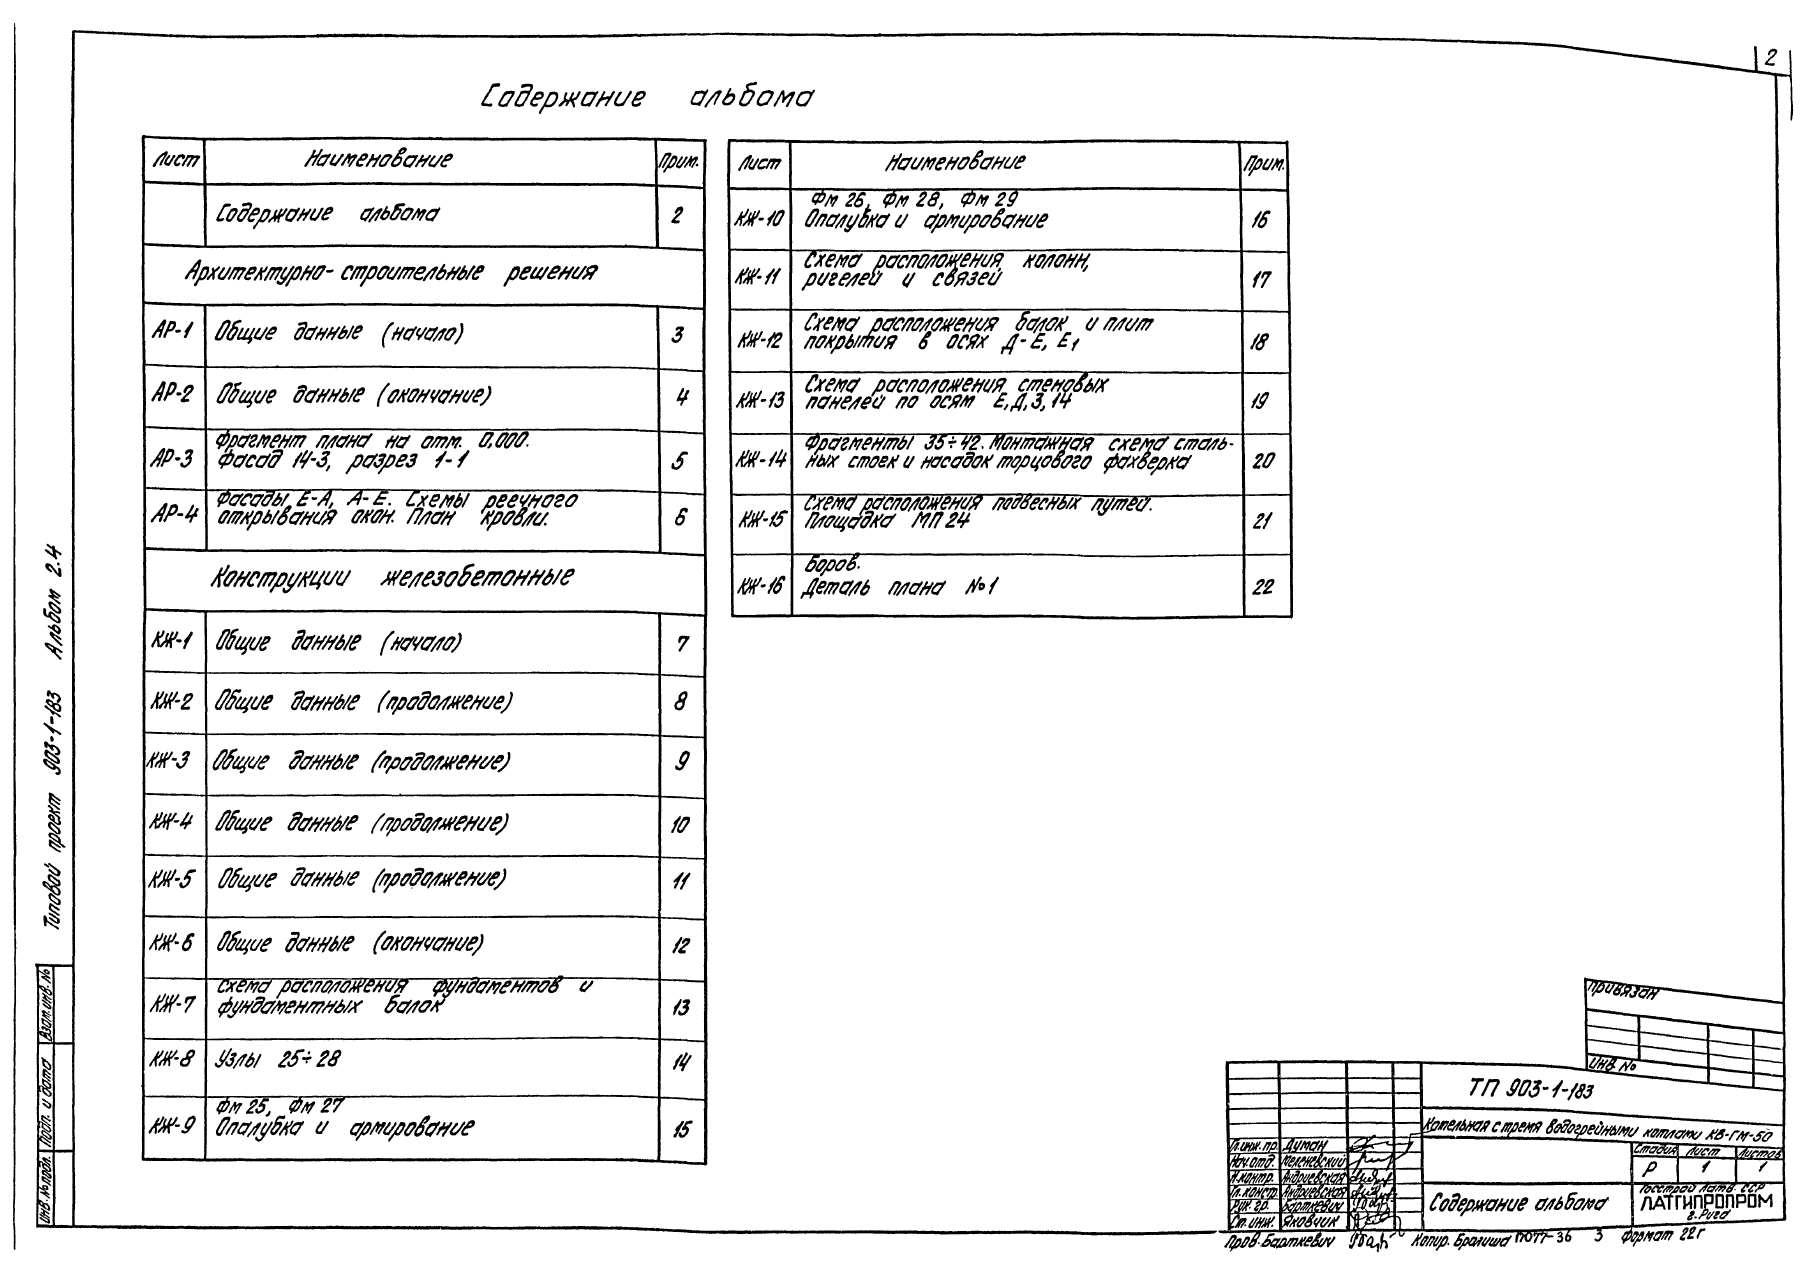 2
Содержание альбома
Лист Наименование Прим.
Содержание альбома 2
Архитектурно-строительные решения
АР-1 Общие данные (начало) 3
АР-2 Общие данные (окончание) 4
АР-3 Фрагмент плана на отм. 0,000.
Фасад 14-3, разрез 1-1 5
АР-4 Фасады Е-А, А-Е. Схемы реечного
открывания окон. План кровли. 6
Конструкции железобетонные
КЖ-1 Общие данные (начало) 7
КЖ-2 Общие данные (продолжение) 8
КЖ-3 Общие данные (продолжение) 9
КЖ-4 Общие данные (продолжение) 10
КЖ-5 Общие данные (продолжение) 11
КЖ-6 Общие данные (окончание) 12
КЖ-7 Схема расположения фундаментов и
фундаментных балок 13
КЖ-8 Узлы 25÷28 14
КЖ-9 Фм 25, Фм 27
Опалубка и армирование 15
Лист Наименование Прим.
КЖ-10 Фм 26, Фм 28, Фм 29
Опалубка и армирование 16
КЖ-11 Схема расположения колонн,
ригелей и связей 17
КЖ-12 Схема расположения балок и плит
покрытия в осях Д-Е, Е1 18
КЖ-13 Схема расположения стеновых
панелей по осям Е,Д,3,14 19
КЖ-14 Фрагменты 35÷42. Монтажная схема сталь-
ных стоек и насадок торцового фахверка 20
КЖ-15 Схема расположения подвесных путей.
Площадка МП24 21
КЖ-16 Боров.
Деталь плана №1 22
Типовой проект 903-1-183 Альбом 2.4
Инв.№подл. Подп. и дата Взам.инв.№
Привязан
Инв №
ТП 903-1-183
Котельная с тремя водогрейными котлами КВ-ГМ-50
Гл.инж.пр. Думан
Нач.отд. Меленевский
Н.контр. Андриевская
Гл.констр. Андриевская
Рук. гр. Барткевич
Ст. инж. Яковчик
Стадия Лист Листов
Р 1 1
Содержание альбома
Госстрой Латв. ССР
ЛАТГИПРОПРОМ
г. Рига
Пров. Барткевич Копир. Бралиша 3 формат 22г